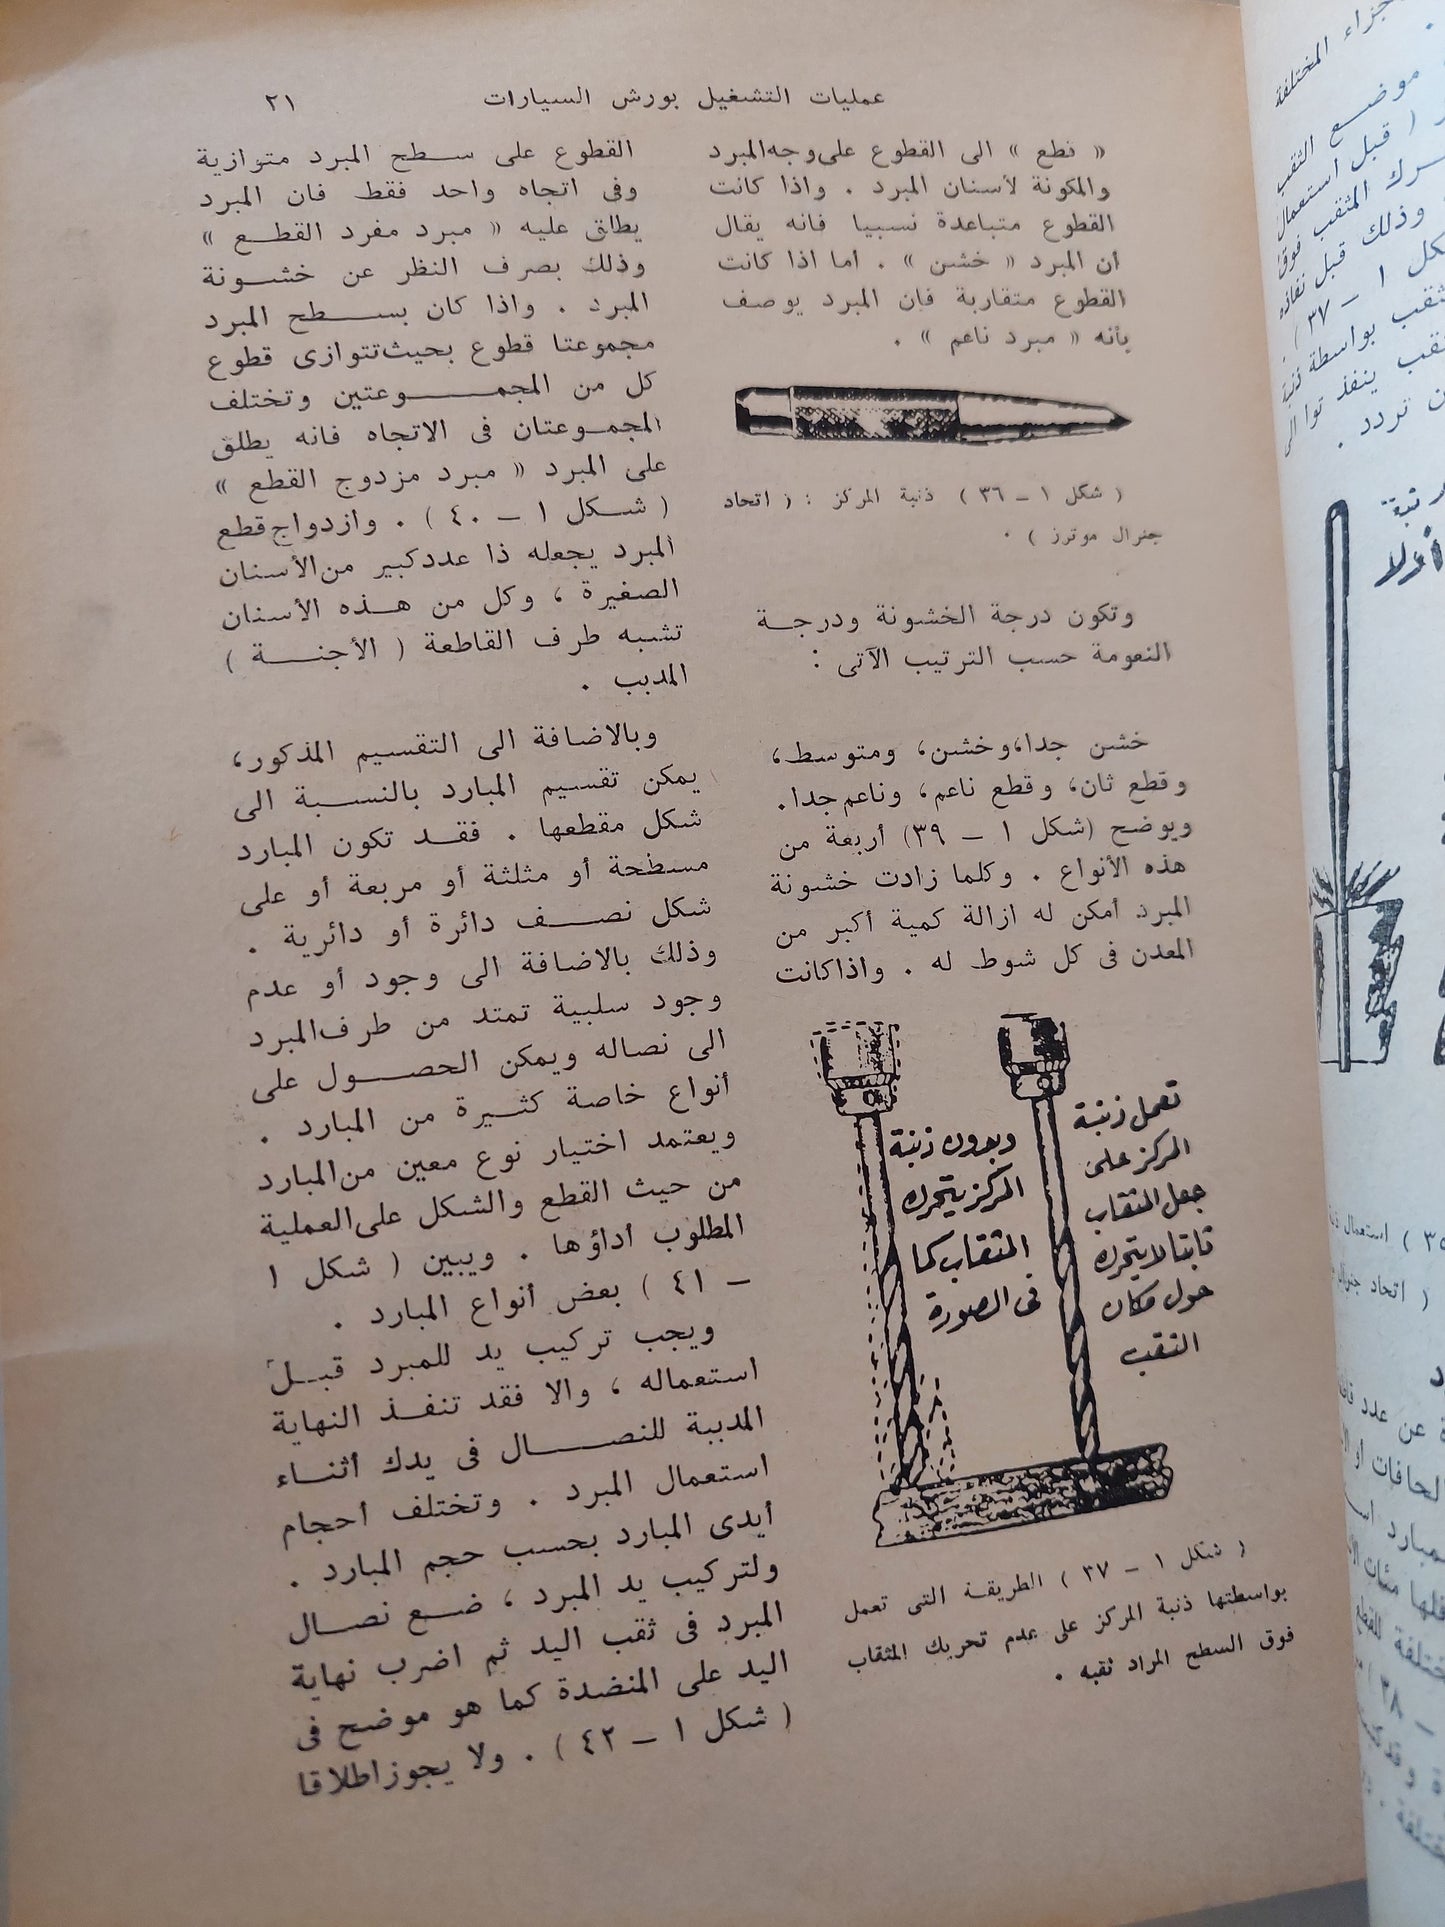 عمليات التشغيل بورش السيارات ٢١
« قطع » الى القطوع على وجه المبرد
والمكونة لأسنان المبرد . واذا كانت
القطوع متباعدة نسبيا فانه يقال
أن المبرد « خشن » . أما اذا كانت
القطوع متقاربة فان المبرد يوصف
بأنه « مبرد ناعم » .
( شكل ١ – ٣٦ ) ذنبة المركز : ( اتحاد
جنرال موترز ) .
وتكون درجة الخشونة ودرجة
النعومة حسب الترتيب الآتى :
خشن جدا، وخشن، ومتوسط،
وقطع ثان، وقطع ناعم، وناعم جدا.
ويوضح (شكل ١ – ٣٩) أربعة من
هذه الأنواع . وكلما زادت خشونة
المبرد أمكن له ازالة كمية أكبر من
المعدن فى كل شوط له . واذا كانت
تعمل ذنبة
المركز على
جعل المثقاب
ثابتا لا يتحرك
حول مكان
الثقب
وبدون ذنبة
المركز يتحرك
المثقاب كما
فى الصورة
( شكل ١ – ٣٧ ) الطريقة التى تعمل
بواسطتها ذنبة المركز على عدم تحريك المثقاب
فوق السطح المراد ثقبه .
القطوع على سطح المبرد متوازية
وفى اتجاه واحد فقط فان المبرد
يطلق عليه « مبرد مفرد القطع »
وذلك بصرف النظر عن خشونة
المبرد . واذا كان بسطح المبرد
مجموعتا قطوع بحيث تتوازى قطوع
كل من المجموعتين وتختلف
المجموعتان فى الاتجاه فانه يطلق
على المبرد « مبرد مزدوج القطع »
( شكل ١ – ٤٠ ) . وازدواج قطع
المبرد يجعله ذا عدد كبير من الأسنان
الصغيرة ، وكل من هذه الأسنان
تشبه طرف القاطعة ( الأجنة )
المدبب .
وبالاضافة الى التقسيم المذكور،
يمكن تقسيم المبارد بالنسبة الى
شكل مقطعها . فقد تكون المبارد
مسطحة أو مثلثة أو مربعة أو على
شكل نصف دائرة أو دائرية .
وذلك بالاضافة الى وجود أو عدم
وجود سلبية تمتد من طرف المبرد
الى نصاله ويمكن الحصول على
أنواع خاصة كثيرة من المبارد .
ويعتمد اختيار نوع معين من المبارد
من حيث القطع والشكل على العملية
المطلوب أداؤها . ويبين ( شكل ١
– ٤١ ) بعض أنواع المبارد .
ويجب تركيب يد للمبرد قبل
استعماله ، والا فقد تنفذ النهاية
المدببة للنصال فى يدك أثناء
استعمال المبرد . وتختلف أحجام
أيدى المبارد بحسب حجم المبارد .
ولتركيب يد المبرد ، ضع نصال
المبرد فى ثقب اليد ثم اضرب نهاية
اليد على المنضدة كما هو موضح فى
( شكل ١ – ٤٢ ) . ولا يجوز اطلاقا